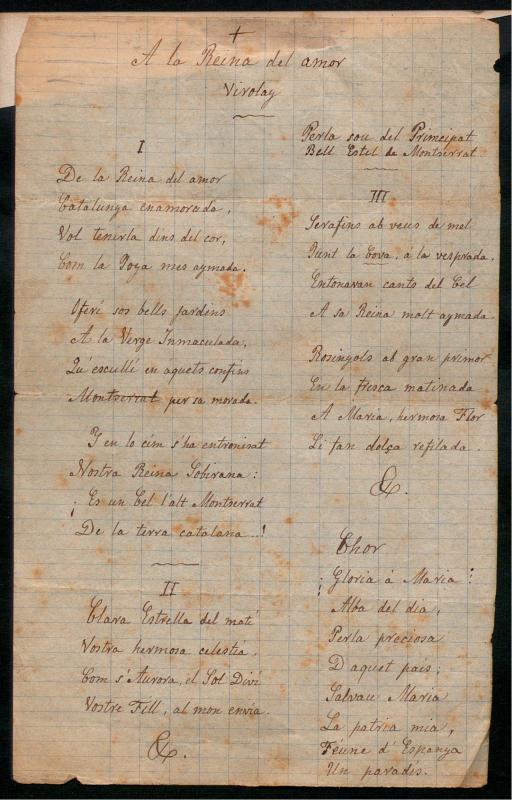 +
A la Reina del amor
Virolay
I
De la Reina del amor
Catalunya enamorada,
Vol tenirla dins del cor,
Com la Joya mes aymada.
Oferí sos bells jardins
A la Verge Inmaculada,
Qu' escullí en aquets confins
Montserrat per sa morada.
Y en lo cim s'ha entronisat
Nostra Reina Sobirana:
¡Es un Cel l'alt Montserrat
De la terra catalana...!
II
Clara Estrella del matí
Vostra hermosa celestia,
Com s'Aurora, el Sol Diví
Vostre Fill, al mon envia.
&.
Perla sou del Principat
Bell Estel de Montserrat
III
Serafins ab veus de mel
Junt la Cova, á la vesprada,
Entonavan cants del Cel
A sa Reina molt aymada.
Rosinyols ab gran primor
En la fresca matinada
A Maria, hermosa Flor
Li fan dolça refilada.
&.
Chor
¡Gloria á Maria!
Alba del dia,
Perla preciosa
D aquet pais;
Salvau Maria
La patria mia,
Féune d' Espanya
Un paradís.